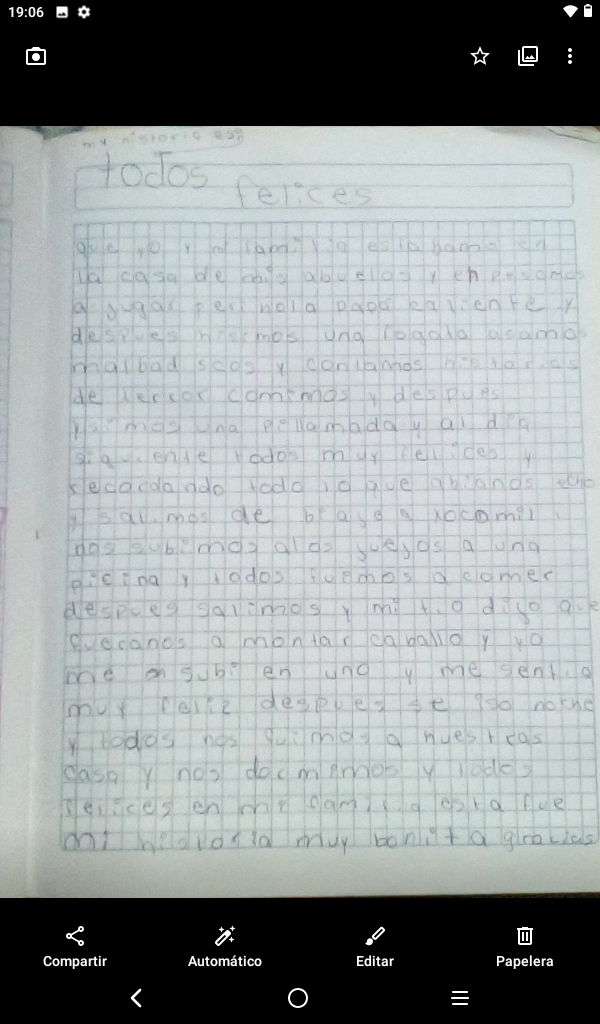 19:06
my historia es
todos
felices
que yo y mi familia estabamo en
la casa de mis abuelos y enpesamos
a jugar papa caliente y
despues hisimos una fogata asamos
malbad scos y contamos historias
de terror comimos y despues
isimos una pillamada y al dia
siguiente todos muy felices y
recordando todo lo que abianos echo
y salimos de biaje a xocomil
nos subimos a los juejos a una
picina y todos fuemos a comer
despues salimos y mi tio dijo que
fueranos a montar caballo y yo
me subi en uno y me senti a
muy feliz despues se iso noche
y todos nos fuimos a nuestras
casa y nos dormimos y todos
felices en mi familia esta fue
mi historia muy bonita gracias
Compartir
Automático
Editar
Papelera